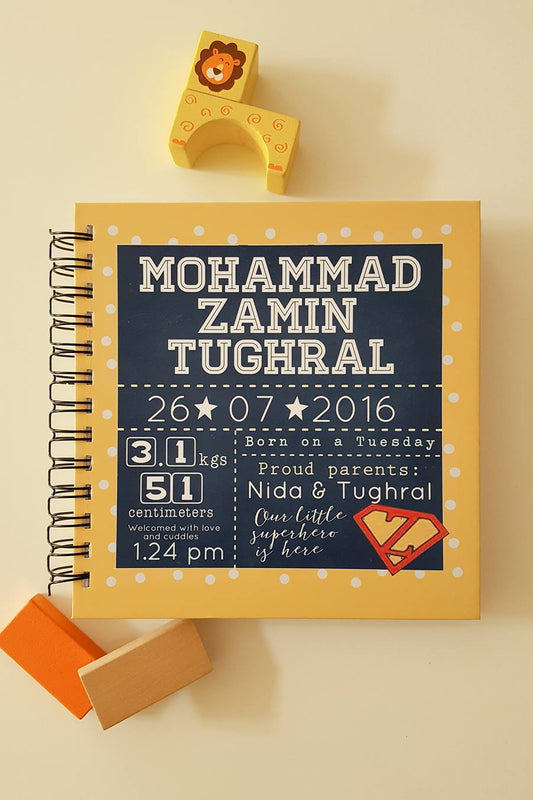 MOHAMMAD
ZAMIN
TUGHRAL
26★07★2016
3.1kgs
51
centimeters
Welcomed with love
and cuddles
1.24 pm
Born on a Tuesday
Proud parents:
Nida & Tughral
Our little
superhero
is here
Z